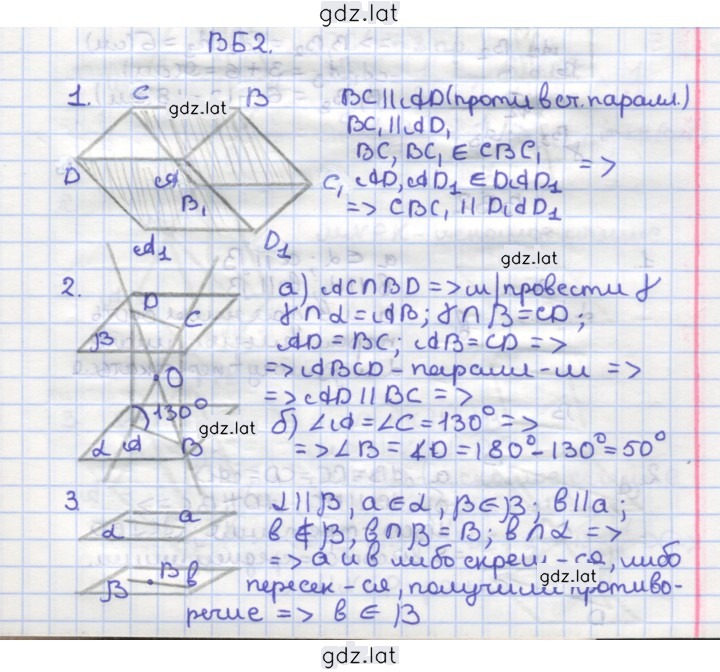 gdz.lat
ВБ2.
1.
C
B
gdz.lat
D
A
B₁
C₁
A₁
D₁
BC || AD (против ст. паралл.)
BC₁ || AD₁
BC, BC₁ ∈ CBC₁
AD, AD₁ ∈ DAD₁ =>
=> CBC₁ || DAD₁
gdz.lat
2.
D
C
β
O
130°
α
A
B
gdz.lat
а) AC∩BD => м | провести γ
γ∩α = AB; γ∩β = CD;
AD = BC; AB = CD =>
=> ABCD - паралл-м =>
=> AD || BC =>
б) ∠A = ∠C = 130° =>
=> ∠B = ∠D = 180° - 130° = 50°
3.
α
a
β
B
в
α || β, a ∈ α, β ∈ β; в || a;
в ∉ β, в∩β = B; в∩α =>
=> a и в либо скрещ-ся, либо
gdz.lat
пересек-ся, получили противо-
речие => в ∈ β
gdz.lat